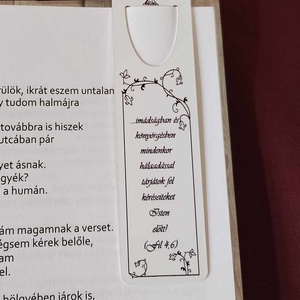 rülök, ikrát eszem untalan
y tudom halmájra
továbbra is hiszek
utcában pár
yet ásnak.
gyék?
a humán.
ám magamnak a verset.
égsem kérek belőle,
am
el.
hölgyében járok is,
...imádságban és
könyörgésben
mindenkor
hálaadással
tárjátok fel
kéréseiteket
Isten
előtt!
(Fil 4,6)